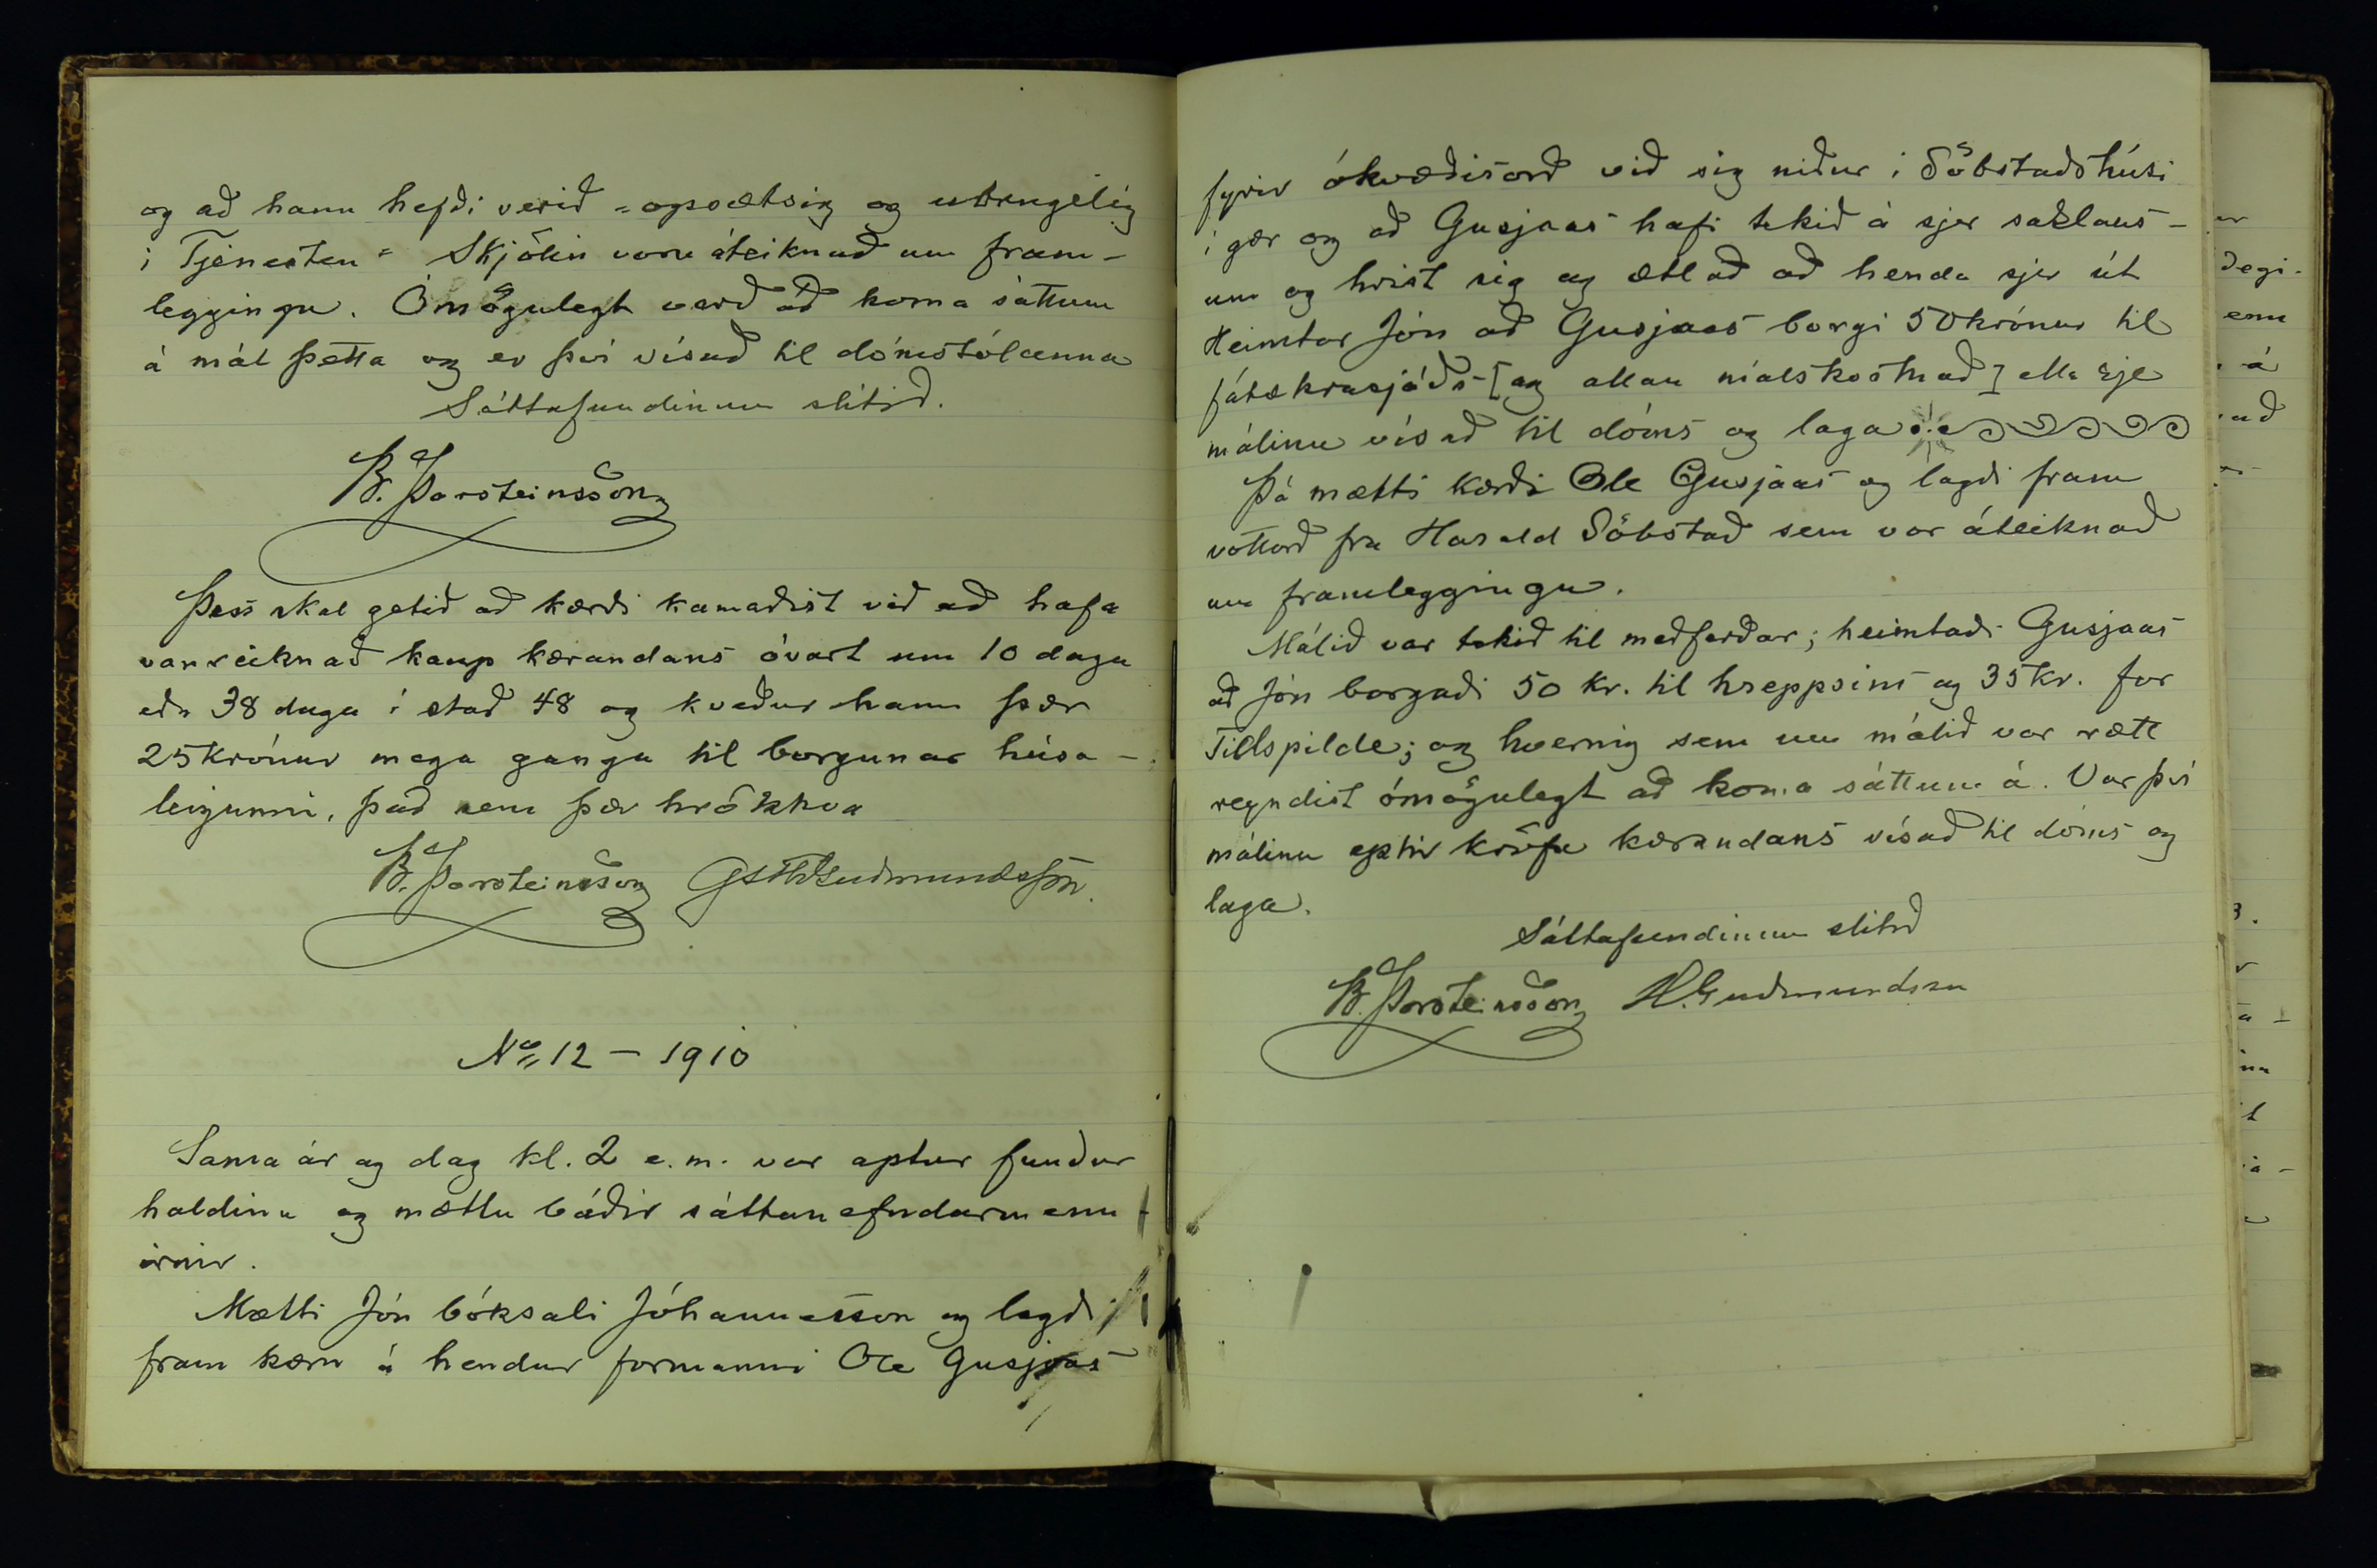 og að hann hefði verið "opsætsig og utrugelig
i Tjenesten" Skjölin voru áteiknuð um fram-
leggingu. Ómögulegt varð að koma sáttum
á mál þetta og er því vísað til dómstólanna
Sáttafundinum slitið.
B. Þorsteinsson
Þess skal getið að kærði kannaðist við að hafa
vanreiknað kaup kærandans óvart um 10 daga
eða 38 daga í stað 48 og kveður hann þær
25 krónur mega ganga til borgunar húsa-
leigunni, það sem þær hrökkva
B. Þorsteinsson Guðmundsson.
No 12 - 1910
Sama ár og dag kl. 2 e.m. var aptur fundur
haldinn og mættu báðir sáttanefndarmenn
irnir.
Mætti Jón bóksali Jóhannesson og lagði
fram kæru á hendur formanni Ole Gusjaas
fyrir ókvæðisorð við sig niður í Söbstaðshúsi
í gær og að Gusjaas hafi tekið á sjer saklaus-
um og hrist sig og ætlað að henda sjer út
Heimtar Jón að Gusjaas borgi 50 krónur til
fátækrasjóðs [og allan málskostnað] ella sje
málinu vísað til dóms og laga
Þá mætti kærði Ole Gusjaas og lagði fram
vottorð fra Harald Söbstað sem var áteiknað
um framleggingu.
Málið var tekið til meðferðar; heimtaði Gusjaas
að Jón borgaði 50 kr. til hreppsins og 35 kr. for
Tidspilde; og hvernig sem um málið var rætt
reyndist ómögulegt að koma sáttum á. Var því
málinu eptir kröfu kærandans vísað til dóms og
laga.
Sáttafundinum slitið
B. Þorsteinsson H. Guðmundsson